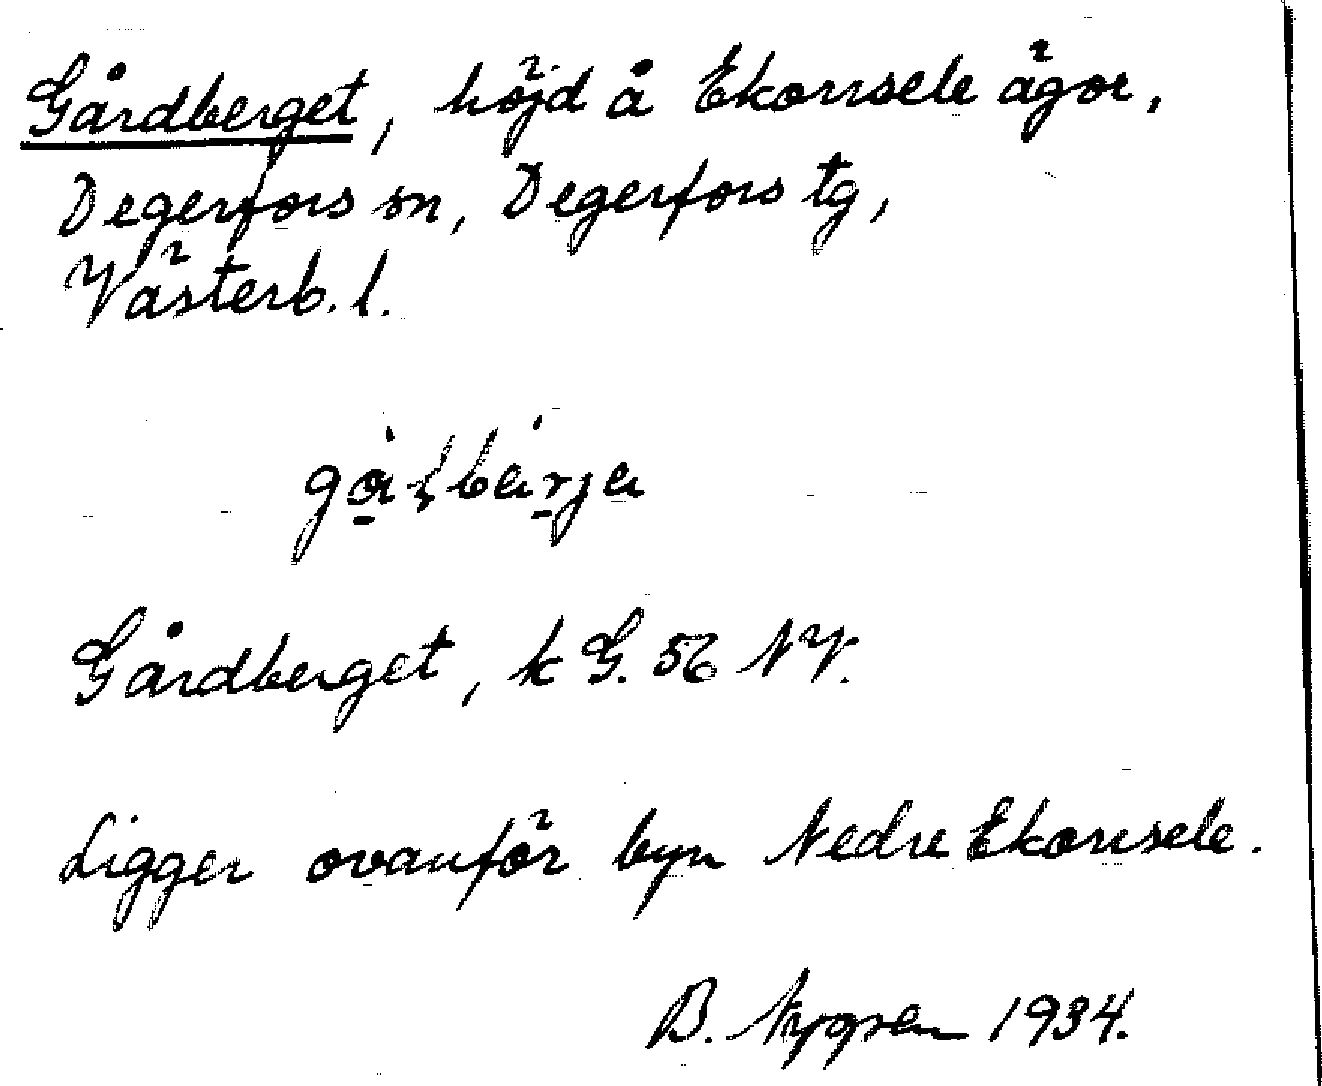 Gårdberget, höjd å Ekorrsele ägor,
Degerfors sn, Degerfors tg,
Västerb. l.
Gårdberget, k G. 56 NV.
Ligger ovanför byn Nedre Ekorrsele.
B. Nygren 1934.